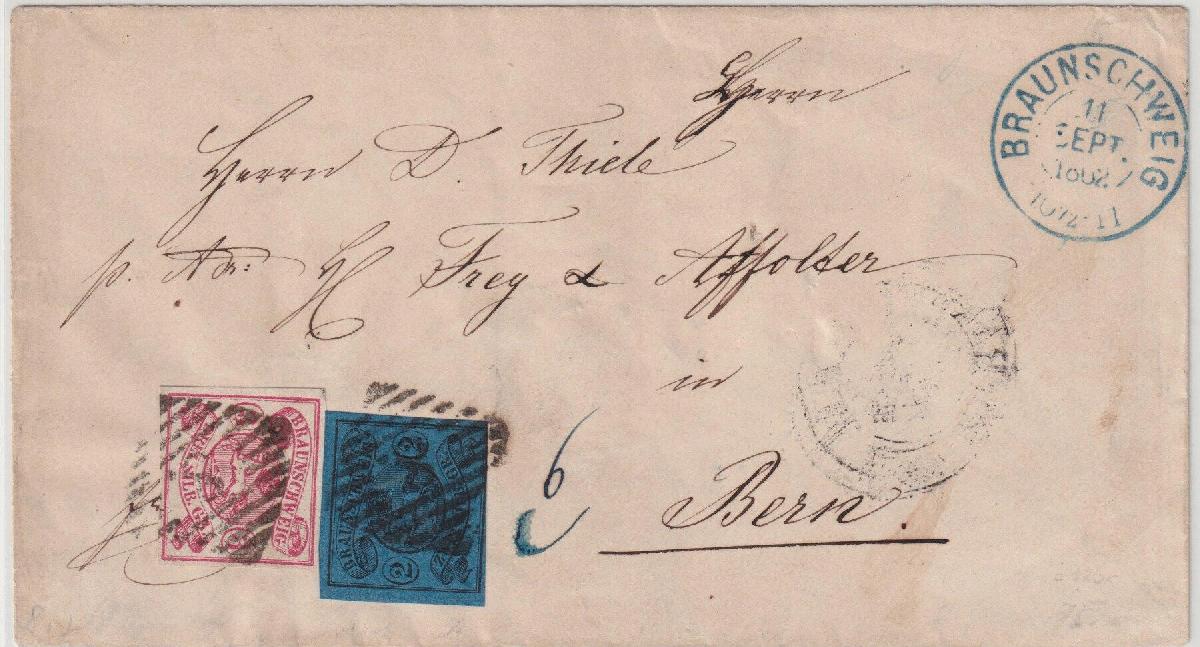 Herrn
Herrn D. Thiele
p. Adr: H Frey & Affolter
in
Bern.
BRAUNSCHWEIG
11
SEPT.
1862
10½-11
BRAUNSCHWEIG
BRAUNSCHWEIG
2
2
6